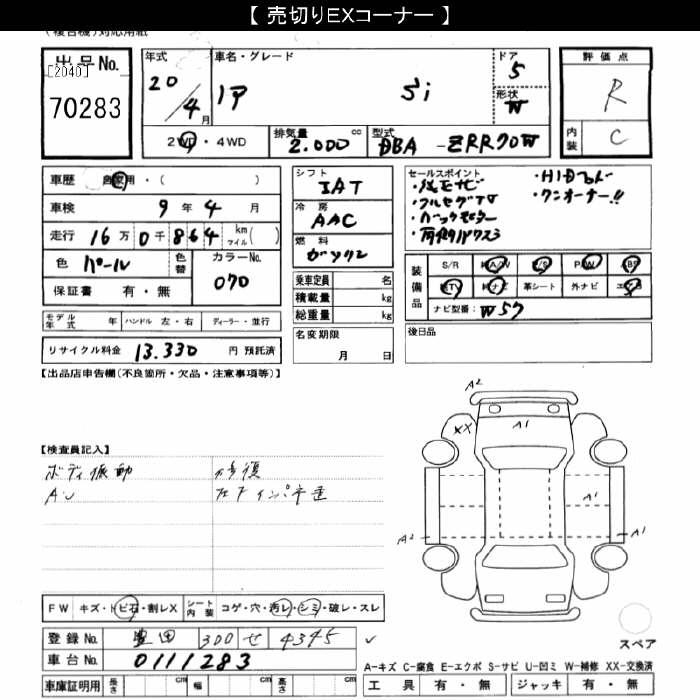 【 売切りEXコーナー 】
(複合機)対応用紙
出品No.
[2040]
70283
年式 20/4月
車名・グレード Si
ドア 5
形状 W
評価点 R
内装 C
2WD・4WD
排気量 2.000 cc
型式 DBA - ZRR70W
車歴 自家用・( )
車検 9年4月
走行 16万0千864 km マイル( )
色 パール
色替
カラーNo. 070
保証書 有・無
シフト IAT
冷房 AAC
燃料 ガソリン
乗車定員 名
積載量 kg
総重量 kg
セールスポイント
・純正ナビ
・フルセグTV
・バックモニター
・両側パワスラ
・HID
・ワンオーナー!!
装備品
S/R A/W P/S P/W ABS
TV ナビ 革シート 外ナビ エアB
ナビ型番: W57
モデル年式 年 ハンドル 左・右 ディーラー・並行
リサイクル料金 13.330 円 預託済
名変期限 月 日
後日品
【出品店申告欄(不良箇所・欠品・注意事項等)】
【検査員記入】
ボディ振動 修復
A2
XX
A1
A1
A2
A1
FW キズ・トビ石・割レX
シート内装 コゲ・穴・汚レ・シミ・破レ・スレ
登録No. 豊田 300 せ 4345
車台No. 0111283
車庫証明用 長さ cm 幅 cm 高さ cm
スペア
A-キズ C-腐食 E-エクボ S-サビ U-凹ミ W-補修 XX-交換済
工具 有・無 ジャッキ 有・無